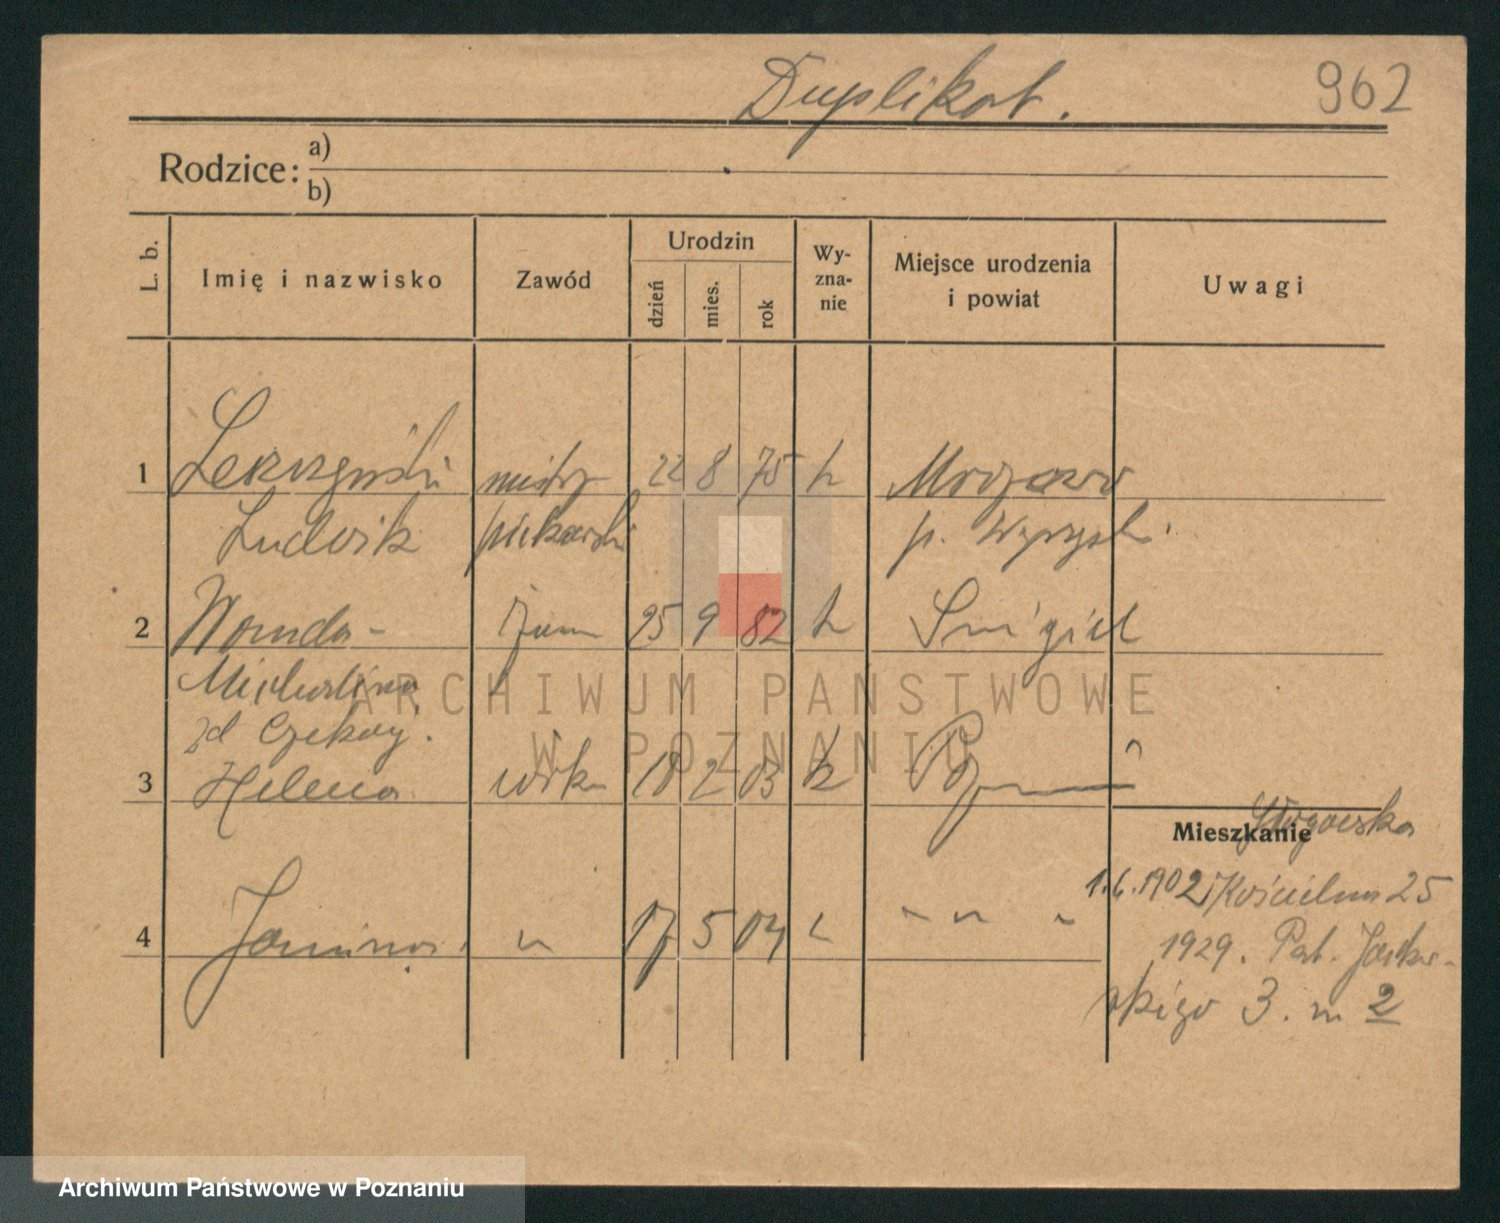 Duplikat.
962
Rodzice: a)
b)
L. b.
Imię i nazwisko
Zawód
Urodzin
dzień
mies.
rok
Wy-
zna-
nie
Miejsce urodzenia
i powiat
Uwagi
1
22 8 75 k
Ludwik
piekarski
p. Wyrzysk.
2 Wanda- żona 25 9 82 k Śmigiel
Michalina
zd
3 Helena 18 2 03 k Poznań
Mieszkanie
1.6.1902 Kościelna 25
4 Janina " 17 5 04 " " " "
1929. Pat. Jacko-
skiego 3. m 2
ARCHIWUM PAŃSTWOWE
W POZNANIU
Archiwum Państwowe w Poznaniu